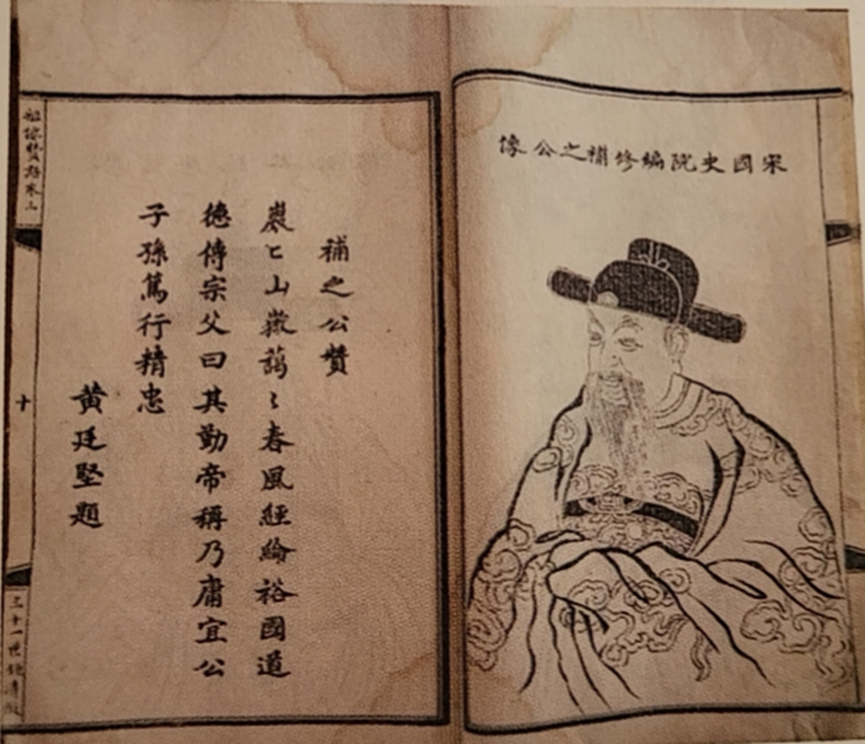 宋國史院編修補之公像
補之公贊
巖〻山嶽藹〻春風經綸裕國道
德傳宗父曰其勤帝稱乃庸宜公
子孫篤行精忠
黃廷堅題
十
三十一世